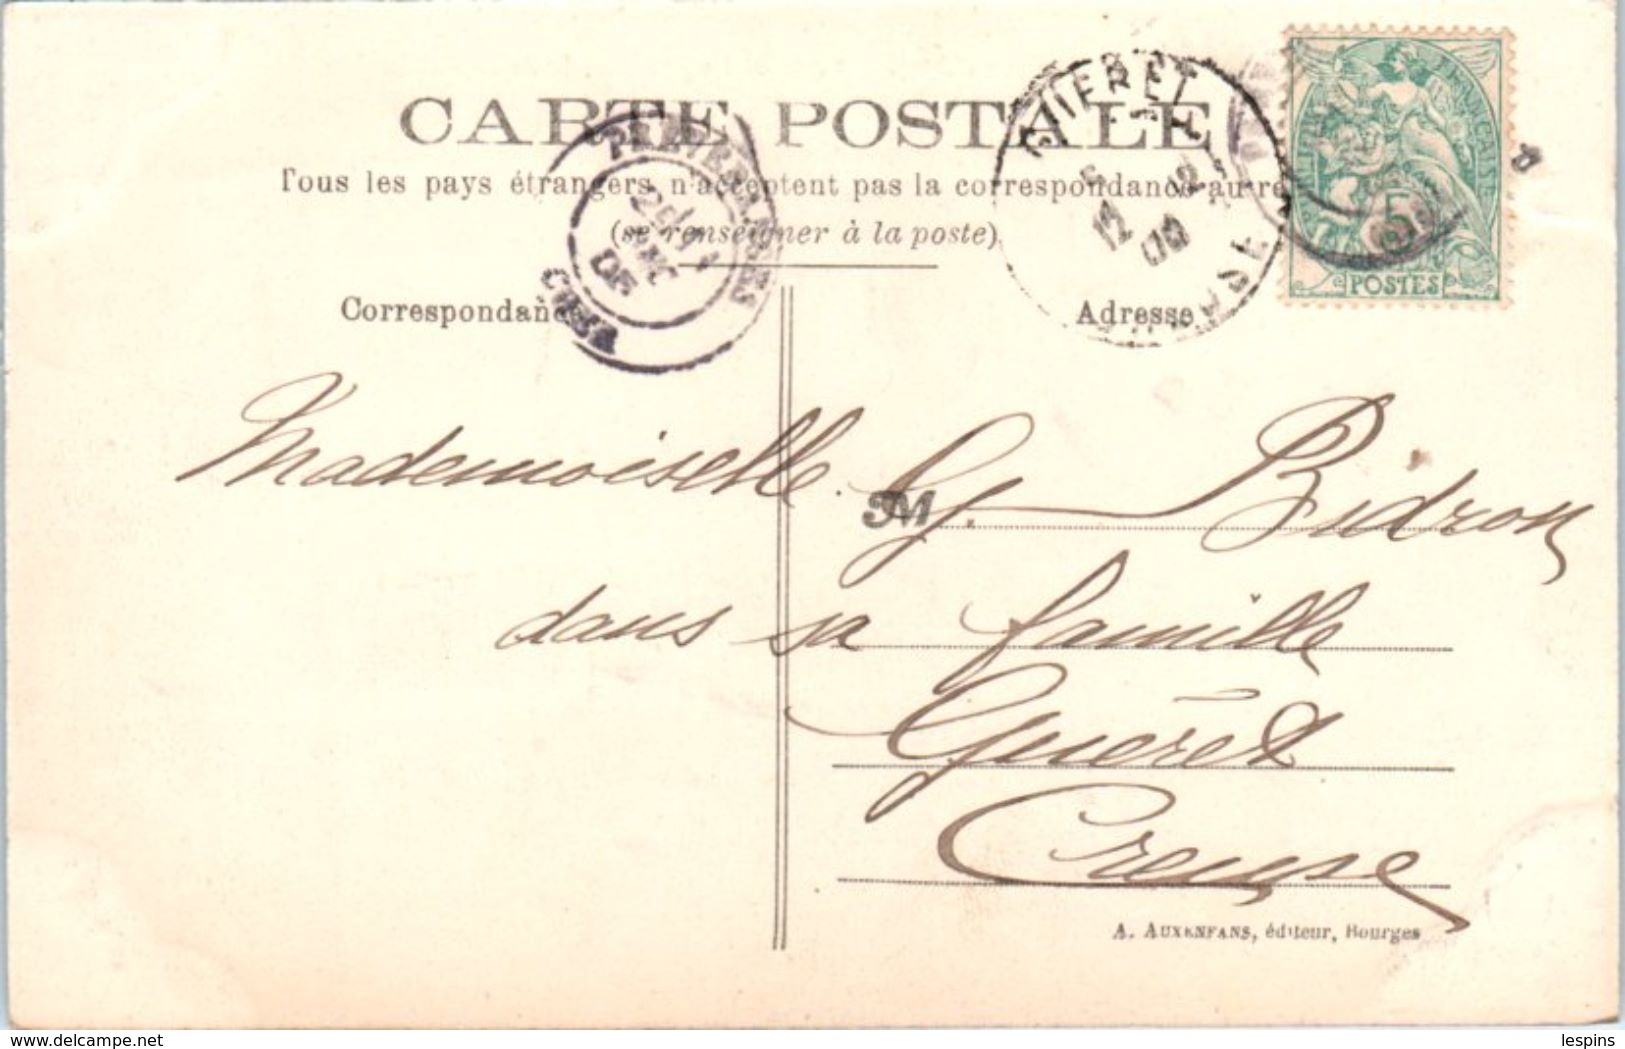 CARTE POSTALE
Tous les pays étrangers n'acceptent pas la correspondance au re
(se renseigner à la poste)
GUERET
12
CREUSE
FRANÇAISE
5
POSTES
Correspondance
Adresse
Mademoiselle G. Bidron
M
dans sa famille
Guéret
Creuse
A. AUXENFANS, éditeur, Bourges
www.delcampe.net
lespins